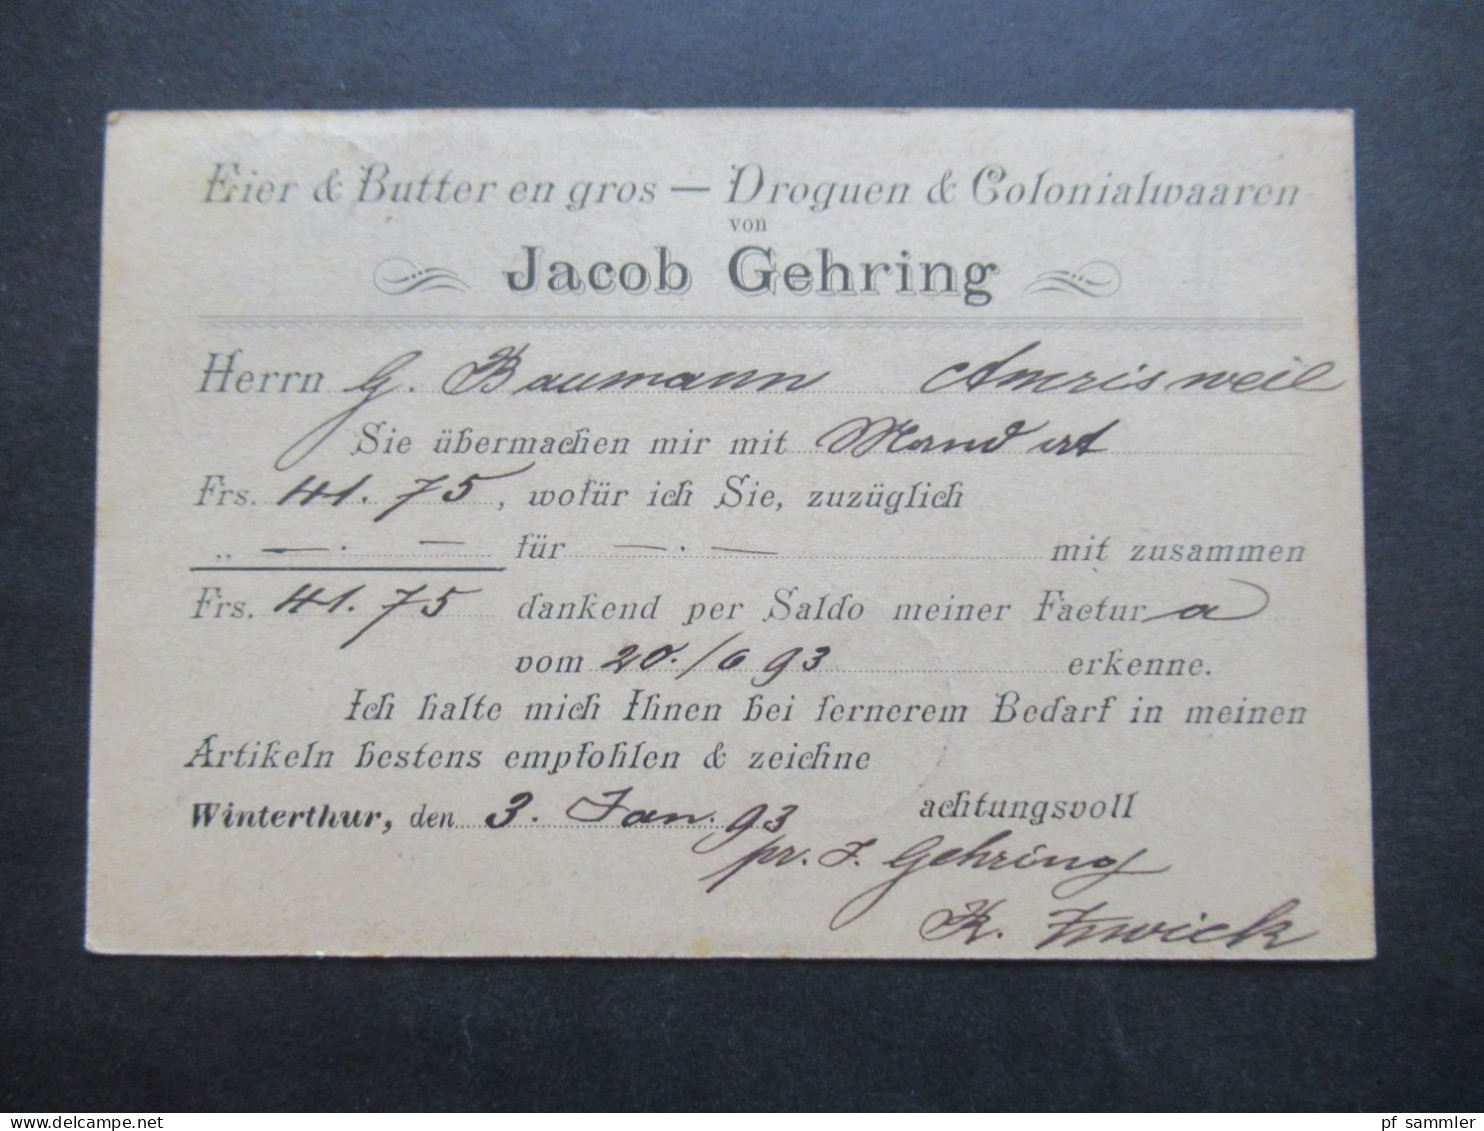 Eier & Butter en gros — Droguen & Colonialwaaren
von
Jacob Gehring
Herrn G. Baumann Amrisweil
Sie übermachen mir mit Mandat
Frs. 41.75, wofür ich Sie, zuzüglich
„ —.— für —.— mit zusammen
Frs. 41.75 dankend per Saldo meiner Factura
vom 20./6 93 erkenne.
Ich halte mich Ihnen bei fernerem Bedarf in meinen
Artikeln bestens empfohlen & zeichne
Winterthur, den 3. Jan. 93 achtungsvoll
pr. J. Gehring
K. Zwick
delcampe.net
pf sammler